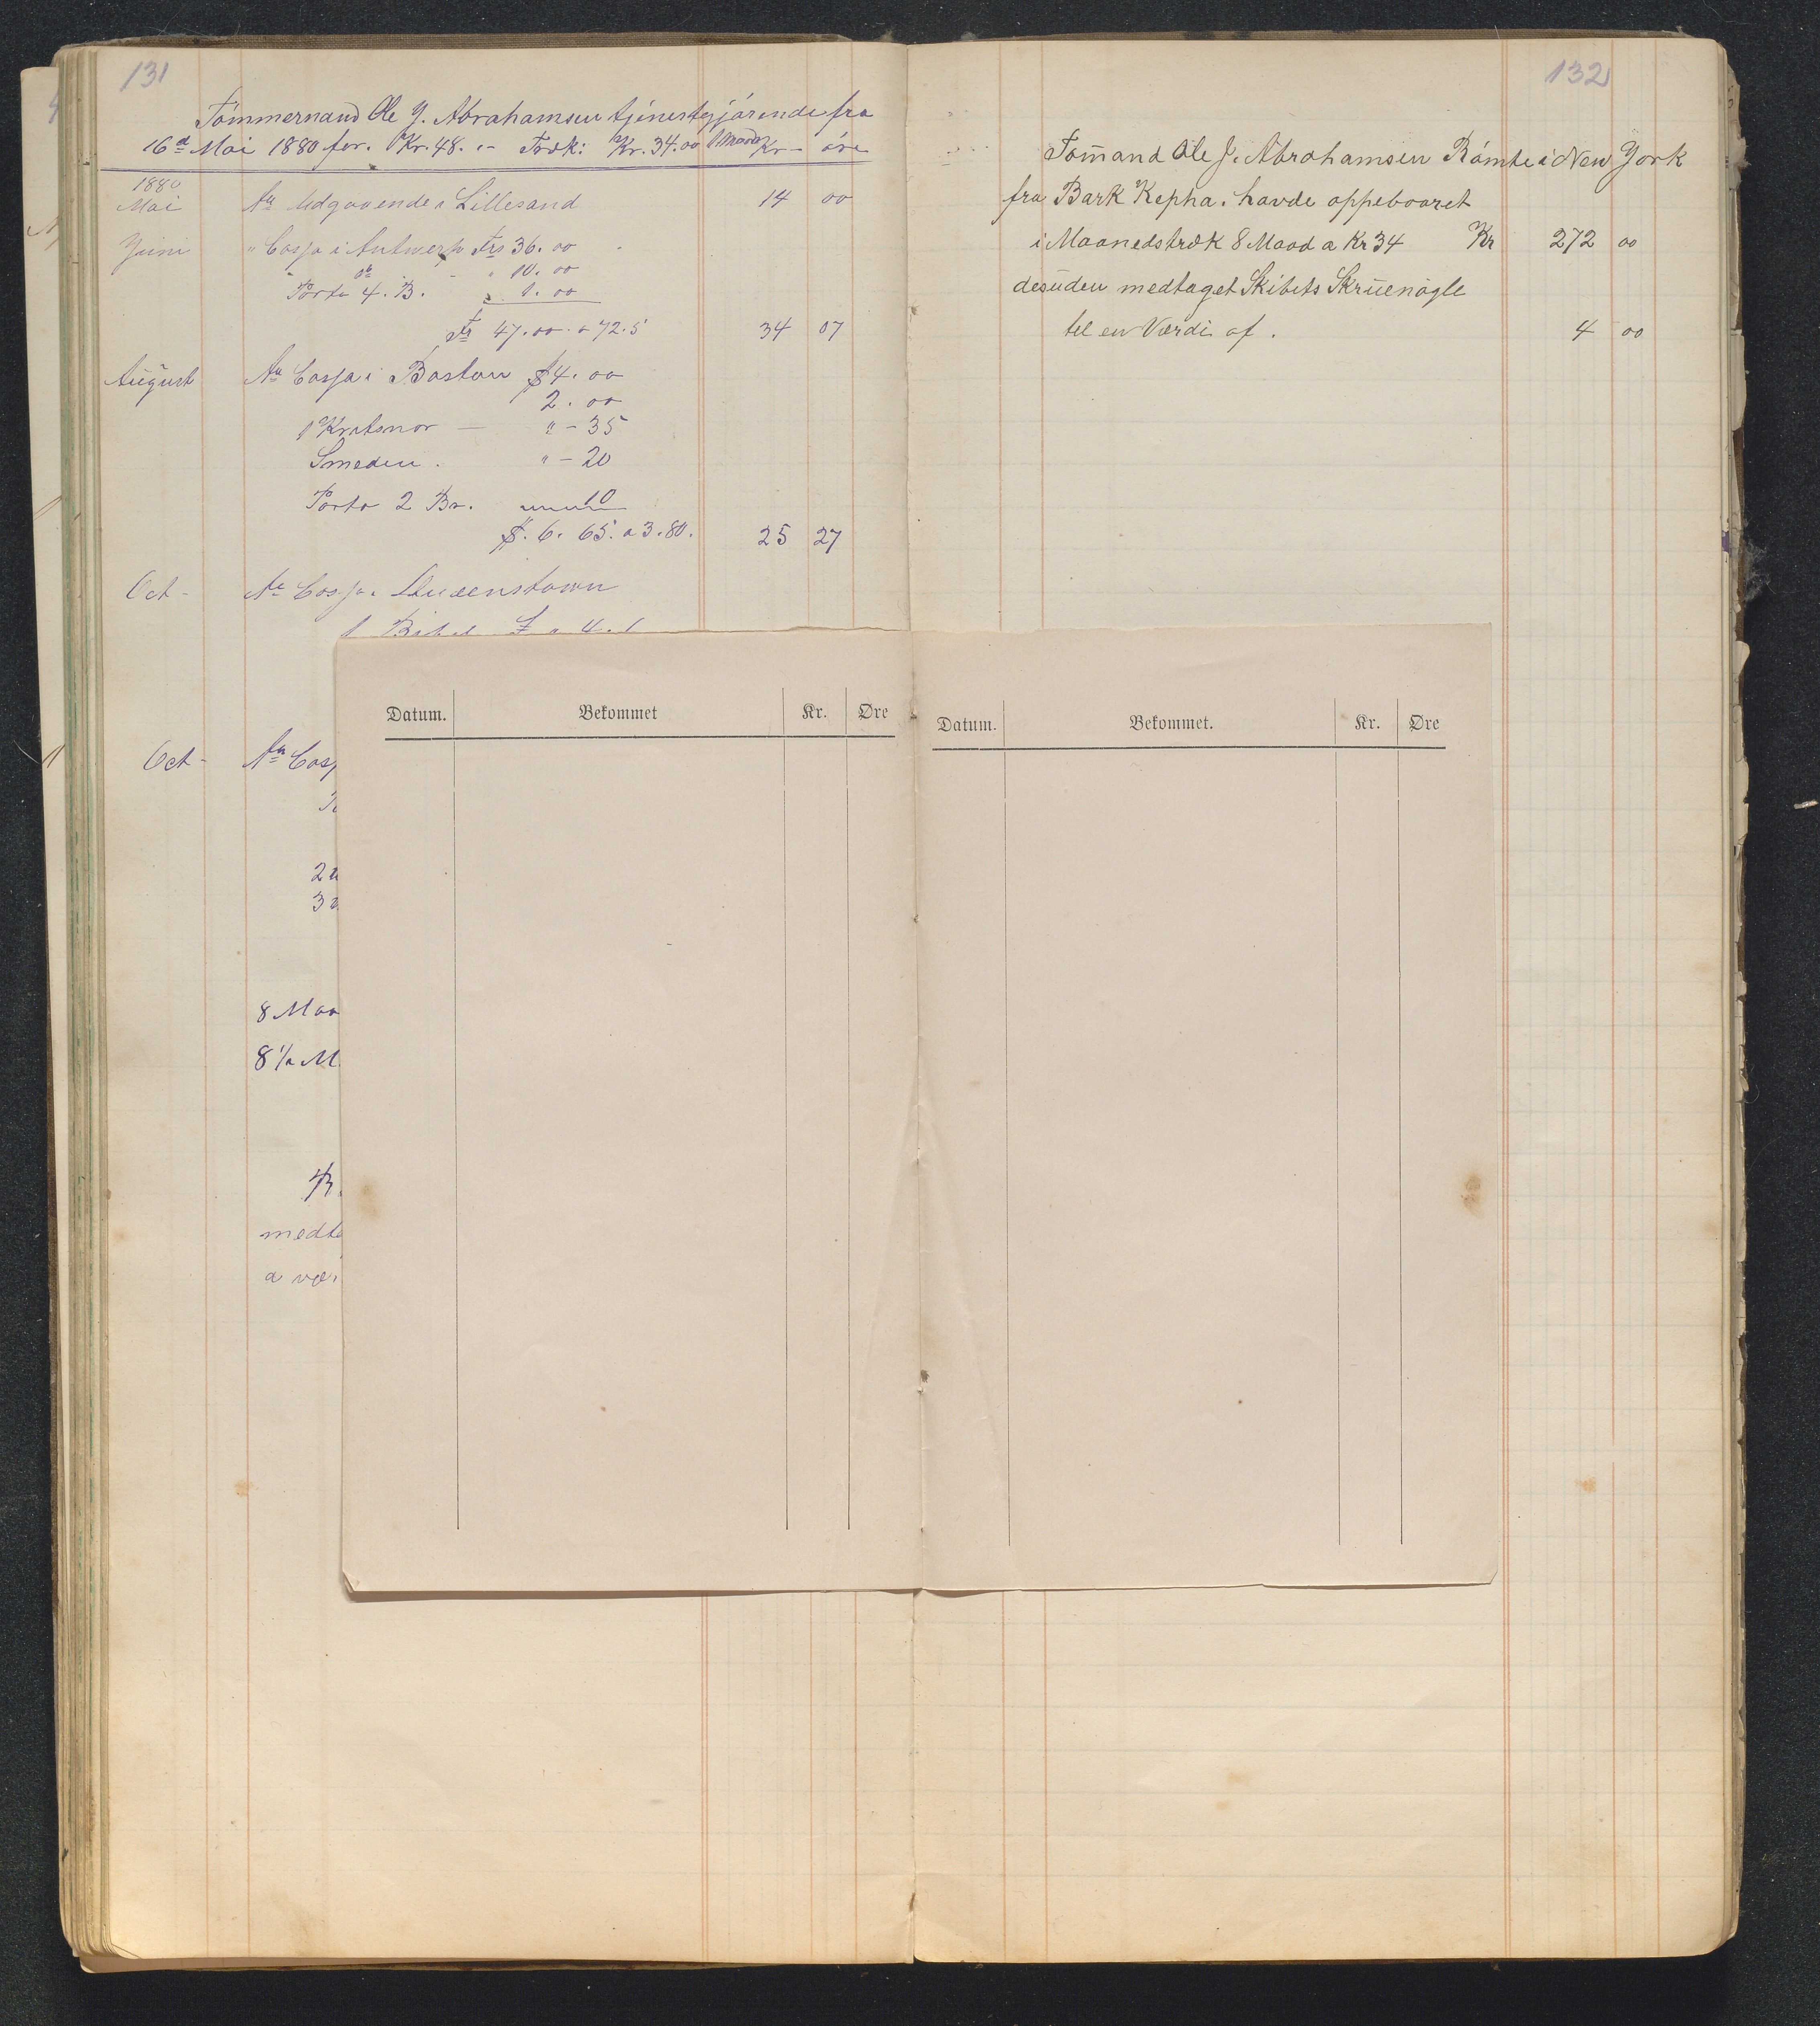 131
Tömmermand Ole J. Abrahamsen tjenestgjörende fra
16d Mai 1880 for. Kr. 48. " - Træk: Kr. 34.00 1 Maaned Kr - öre
1880
Mai An Udgaaende i Lillesand 14 00
Juni " Cassa i Antwerp Frs 36.00
" do - " 10.00
Porto 4. B. " 1.00
Fr 47.00 a 72.5 34 07
August An Cassa i Boston $4.00
2.00
1 " - 35
Smeden. " - 20
Porto 2 Br. 10
$. 6. 65. a 3.80. 25 27
Oct - An Cassa i Queenstown
1 £ " 4. 1
Oct - An Cass
2
3
8 Maa
8 ½ M.
medta
a vær
132
Tom̄and Ole J. Abrahamsen Römte i New York
fra Bark Kepha. havde oppebaaret
i Maanedstræk 8 Maad a Kr 34 Kr 272 00
desuden medtaget Skibets Skruenögle
til en Værdi af. 4 00
Datum. Bekommet Kr. Øre
Datum. Bekommet. Kr. Øre